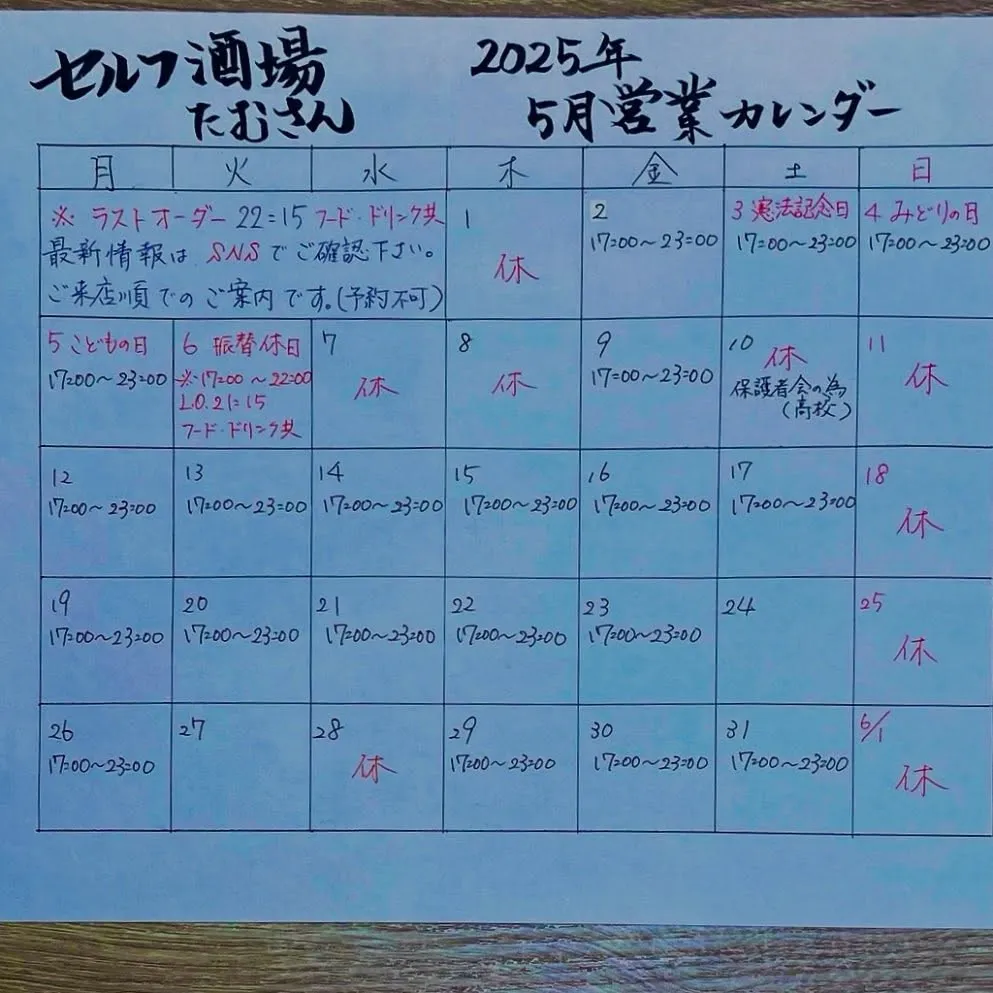 セルフ酒場
たむさん
2025年
5月営業カレンダー
月 火 水 木 金 土 日
※ ラストオーダー 22=15 フード・ドリンク共
最新情報は SNSでご確認下さい。
ご来店順でのご案内です。(予約不可)
1
休
2
17=00～23=00
3 憲法記念日
17=00～23=00
4 みどりの日
17=00～23=00
5 こどもの日
17=00～23=00
6 振替休日
※17=00～22=00
L.O.21=15
フード・ドリンク共
7
休
8
休
9
17=00～23=00
10
休
保護者会の為
(高校)
11
休
12
17=00～23=00
13
17=00～23=00
14
17=00～23=00
15
17=00～23=00
16
17=00～23=00
17
17=00～23=00
18
休
19
17=00～23=00
20
17=00～23=00
21
17=00～23=00
22
17=00～23=00
23
17=00～23=00
24
25
休
26
17=00～23=00
27
28
休
29
17=00～23=00
30
17=00～23=00
31
17=00～23=00
6/1
休